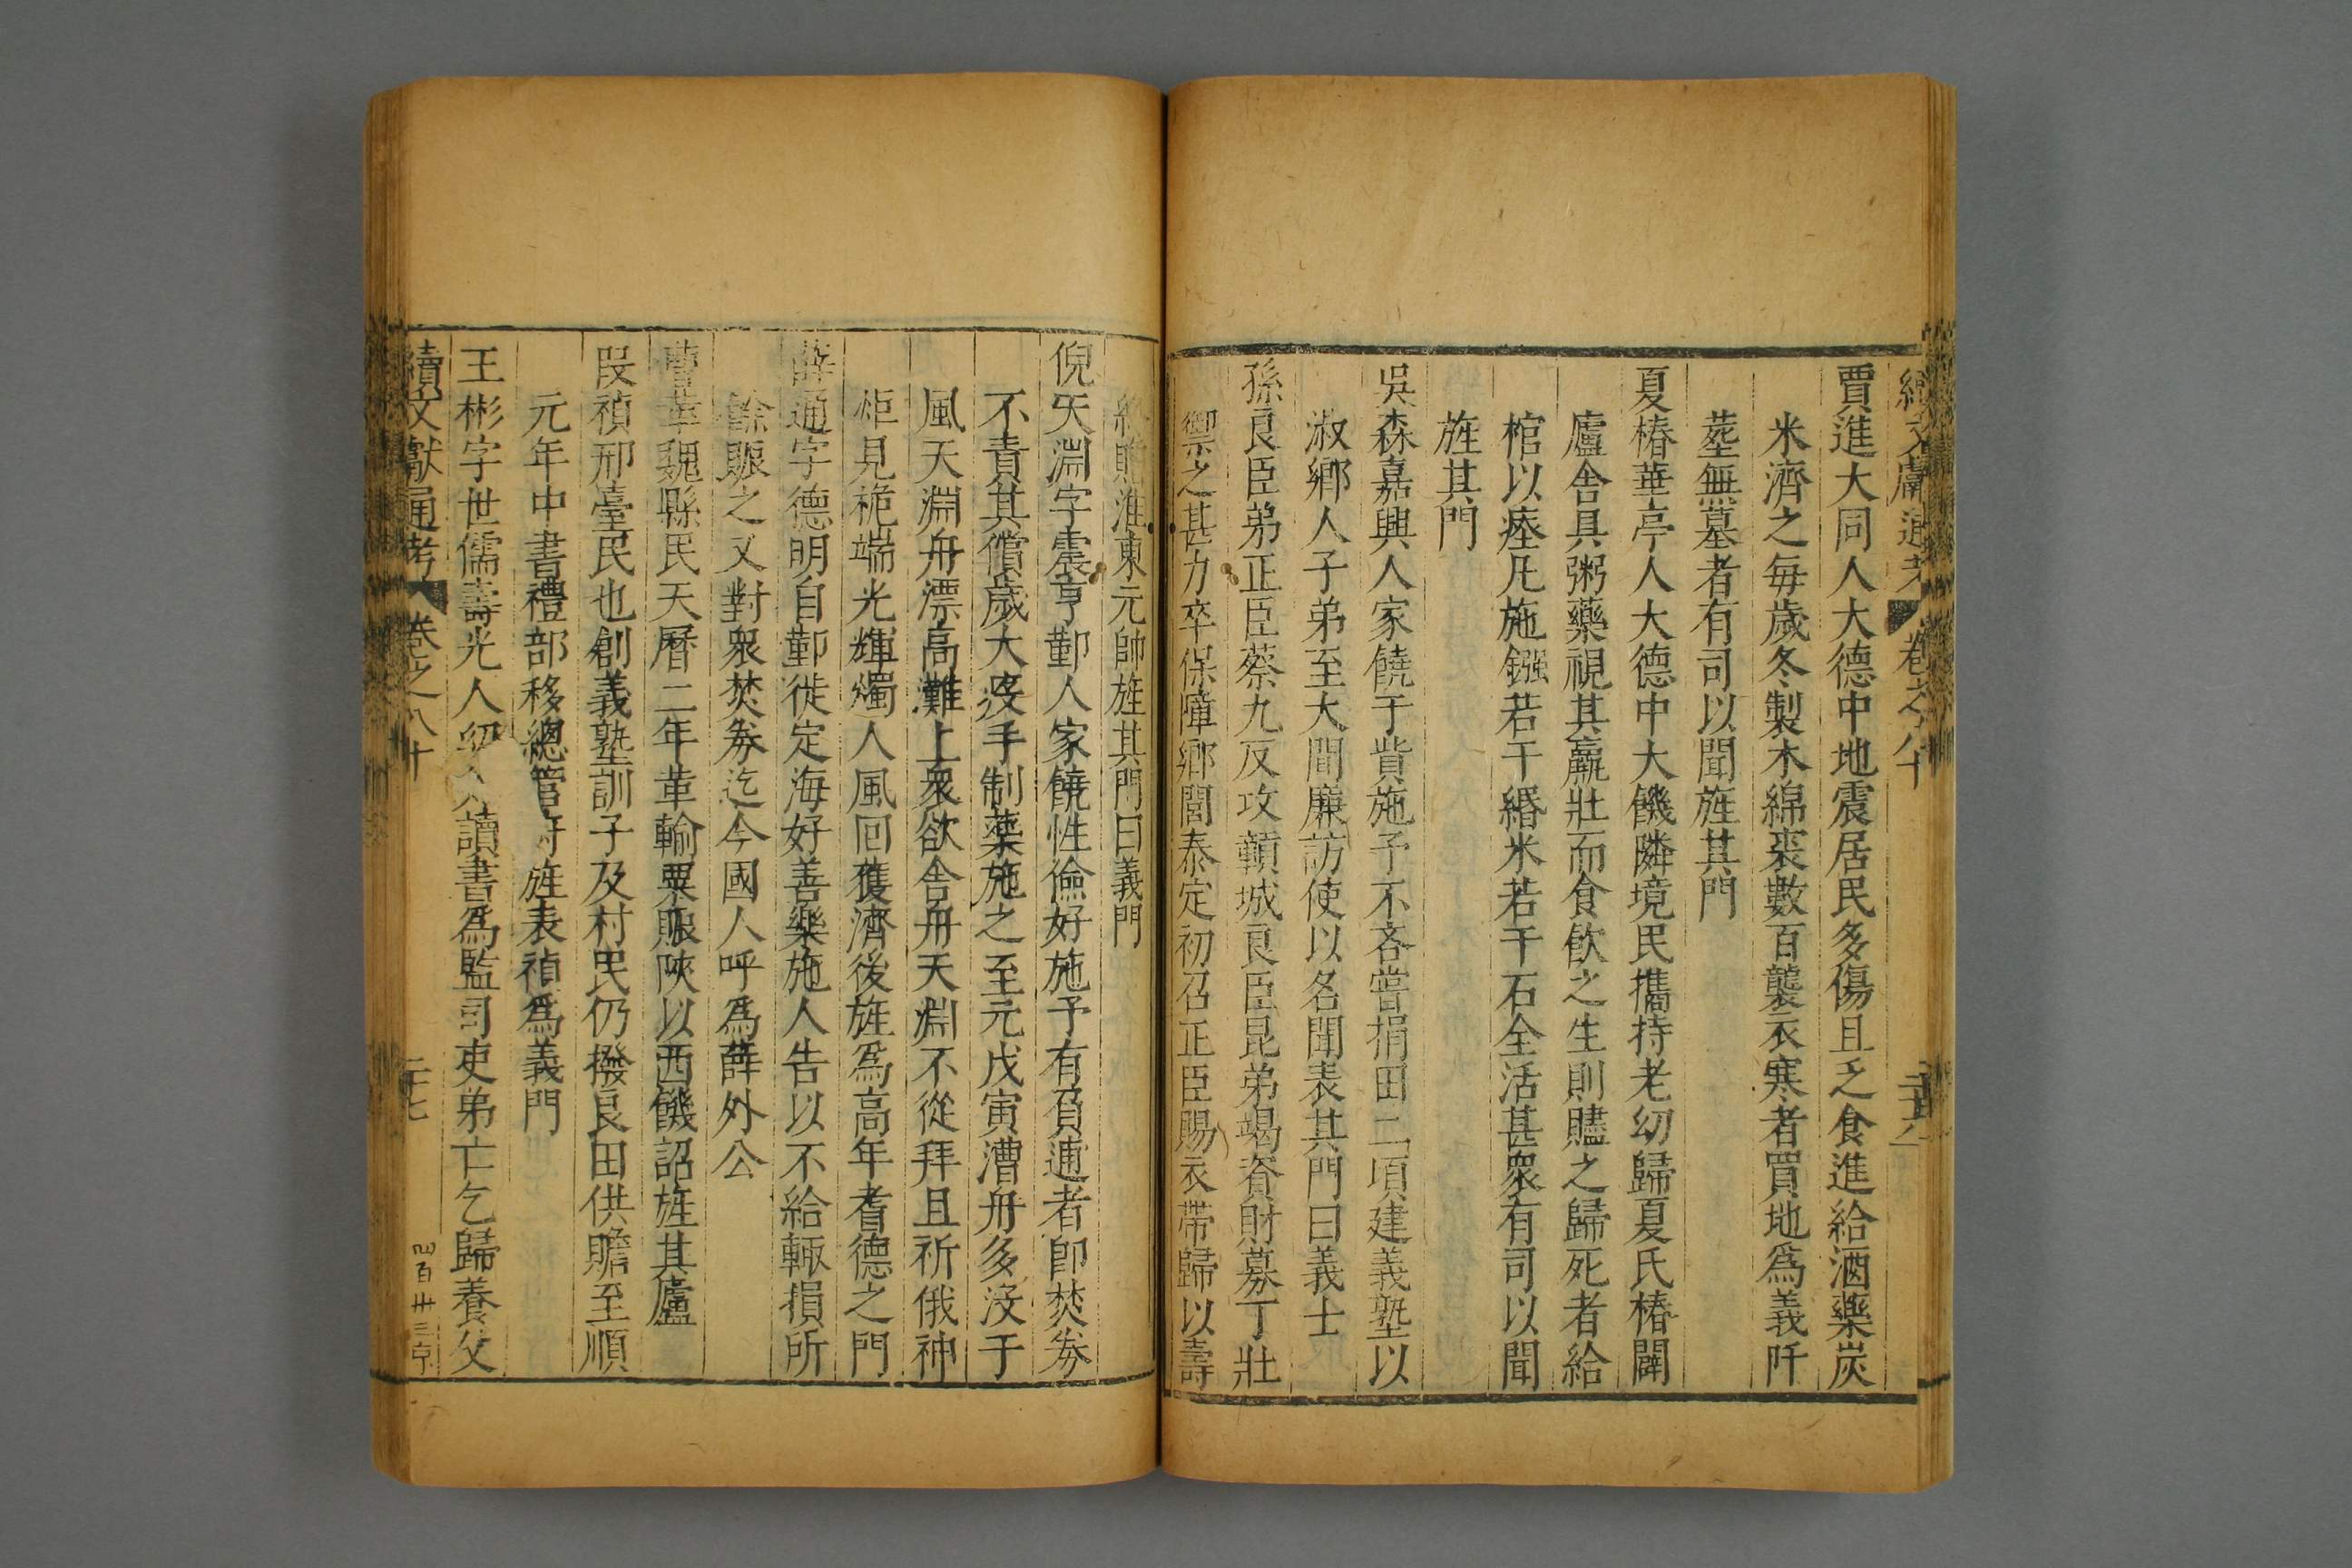 續文獻通考 卷之八十
賈進大同人大德中地震居民多傷且乏食進給酒藥炭
米濟之每歲冬製木綿裘數百襲衣寒者買地爲義阡
塟無墓者有司以聞旌其門
夏椿華亭人大德中大饑隣境民攜持老幼歸夏氏椿闢
廬舍具粥藥視其羸壯而食飲之生則贐之歸死者給
棺以瘞凡施鏹若干緡米若干石全活甚衆有司以聞
旌其門
吳森嘉興人家饒于貲施予不吝嘗捐田二頃建義塾以
淑鄉人子弟至大間廉訪使以名聞表其門曰義士
孫良臣弟正臣蔡九反攻贑城良臣昆弟竭資財募丁壯
禦之甚力卒保障鄉閭泰定初召正臣賜衣帶歸以壽
終贈淮東元帥旌其門曰義門
倪天淵字震亨鄞人家饒性儉好施予有負逋者卽焚券
不責其償歲大疫手制藥施之至元戊寅漕舟多没于
風天淵舟漂高灘上衆欲舍舟天淵不從拜且祈俄神
炬見桅端光輝燭人風回獲濟後旌爲高年耆德之門
薛通字德明自鄞徙定海好善樂施人告以不給輒損所
餘賑之又對衆焚券迄今國人呼爲薛外公
曹革魏縣民天曆二年革輸粟賑陝以西饑詔旌其廬
段禎邢臺民也創義塾訓子及村民仍撥良田供贍至順
元年中書禮部移總管府旌表禎爲義門
王彬字世儒壽光人幼讀書爲監司吏弟亡乞歸養父
續文獻通考 卷之八十 二十七 四百卅三 京